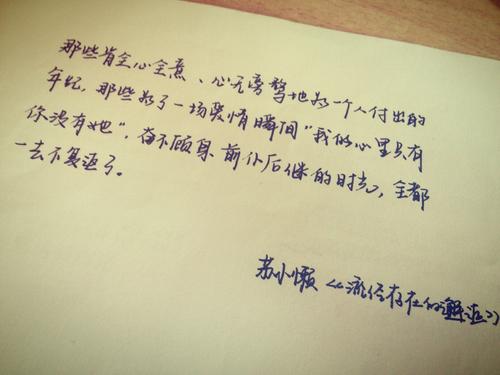 那些肯全心全意、心无旁骛地为一个人付出的
年纪，那些为了一场爱情瞬间“我的心里只有
你没有她”，奋不顾身前仆后继的时光，全都
一去不复返了。
苏小懒《流经存在的邂逅》